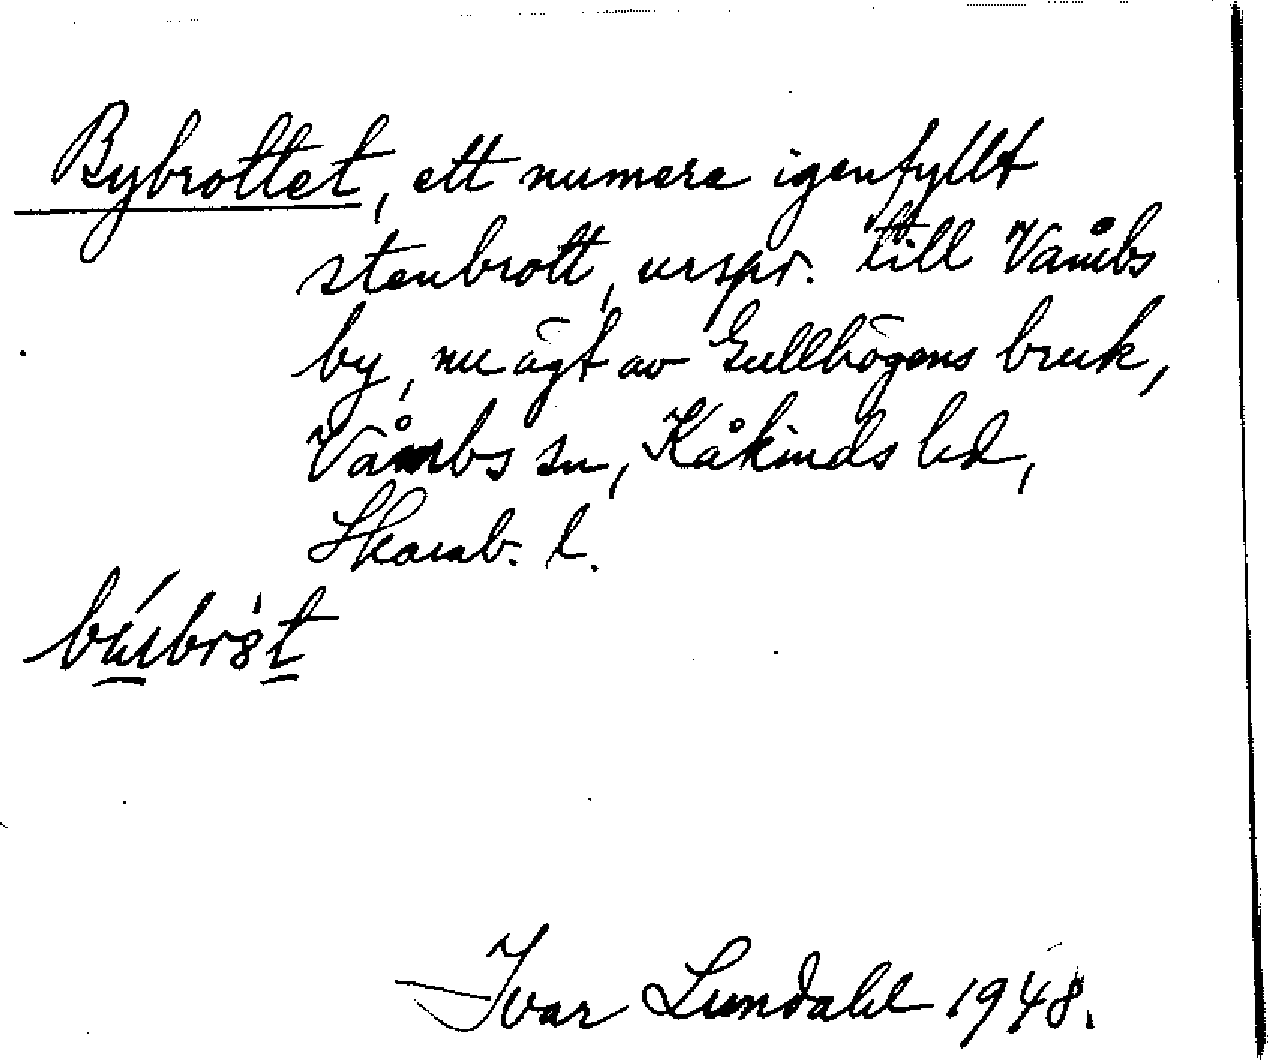 Bybrottet, ett numera igenfyllt
stenbrott, urspr. till Våmbs
by, nu ägt av Gullhögens bruk,
Våmbs sn, Kåkinds hd,
Skarab. l.
Ivar Lundahl 1948.